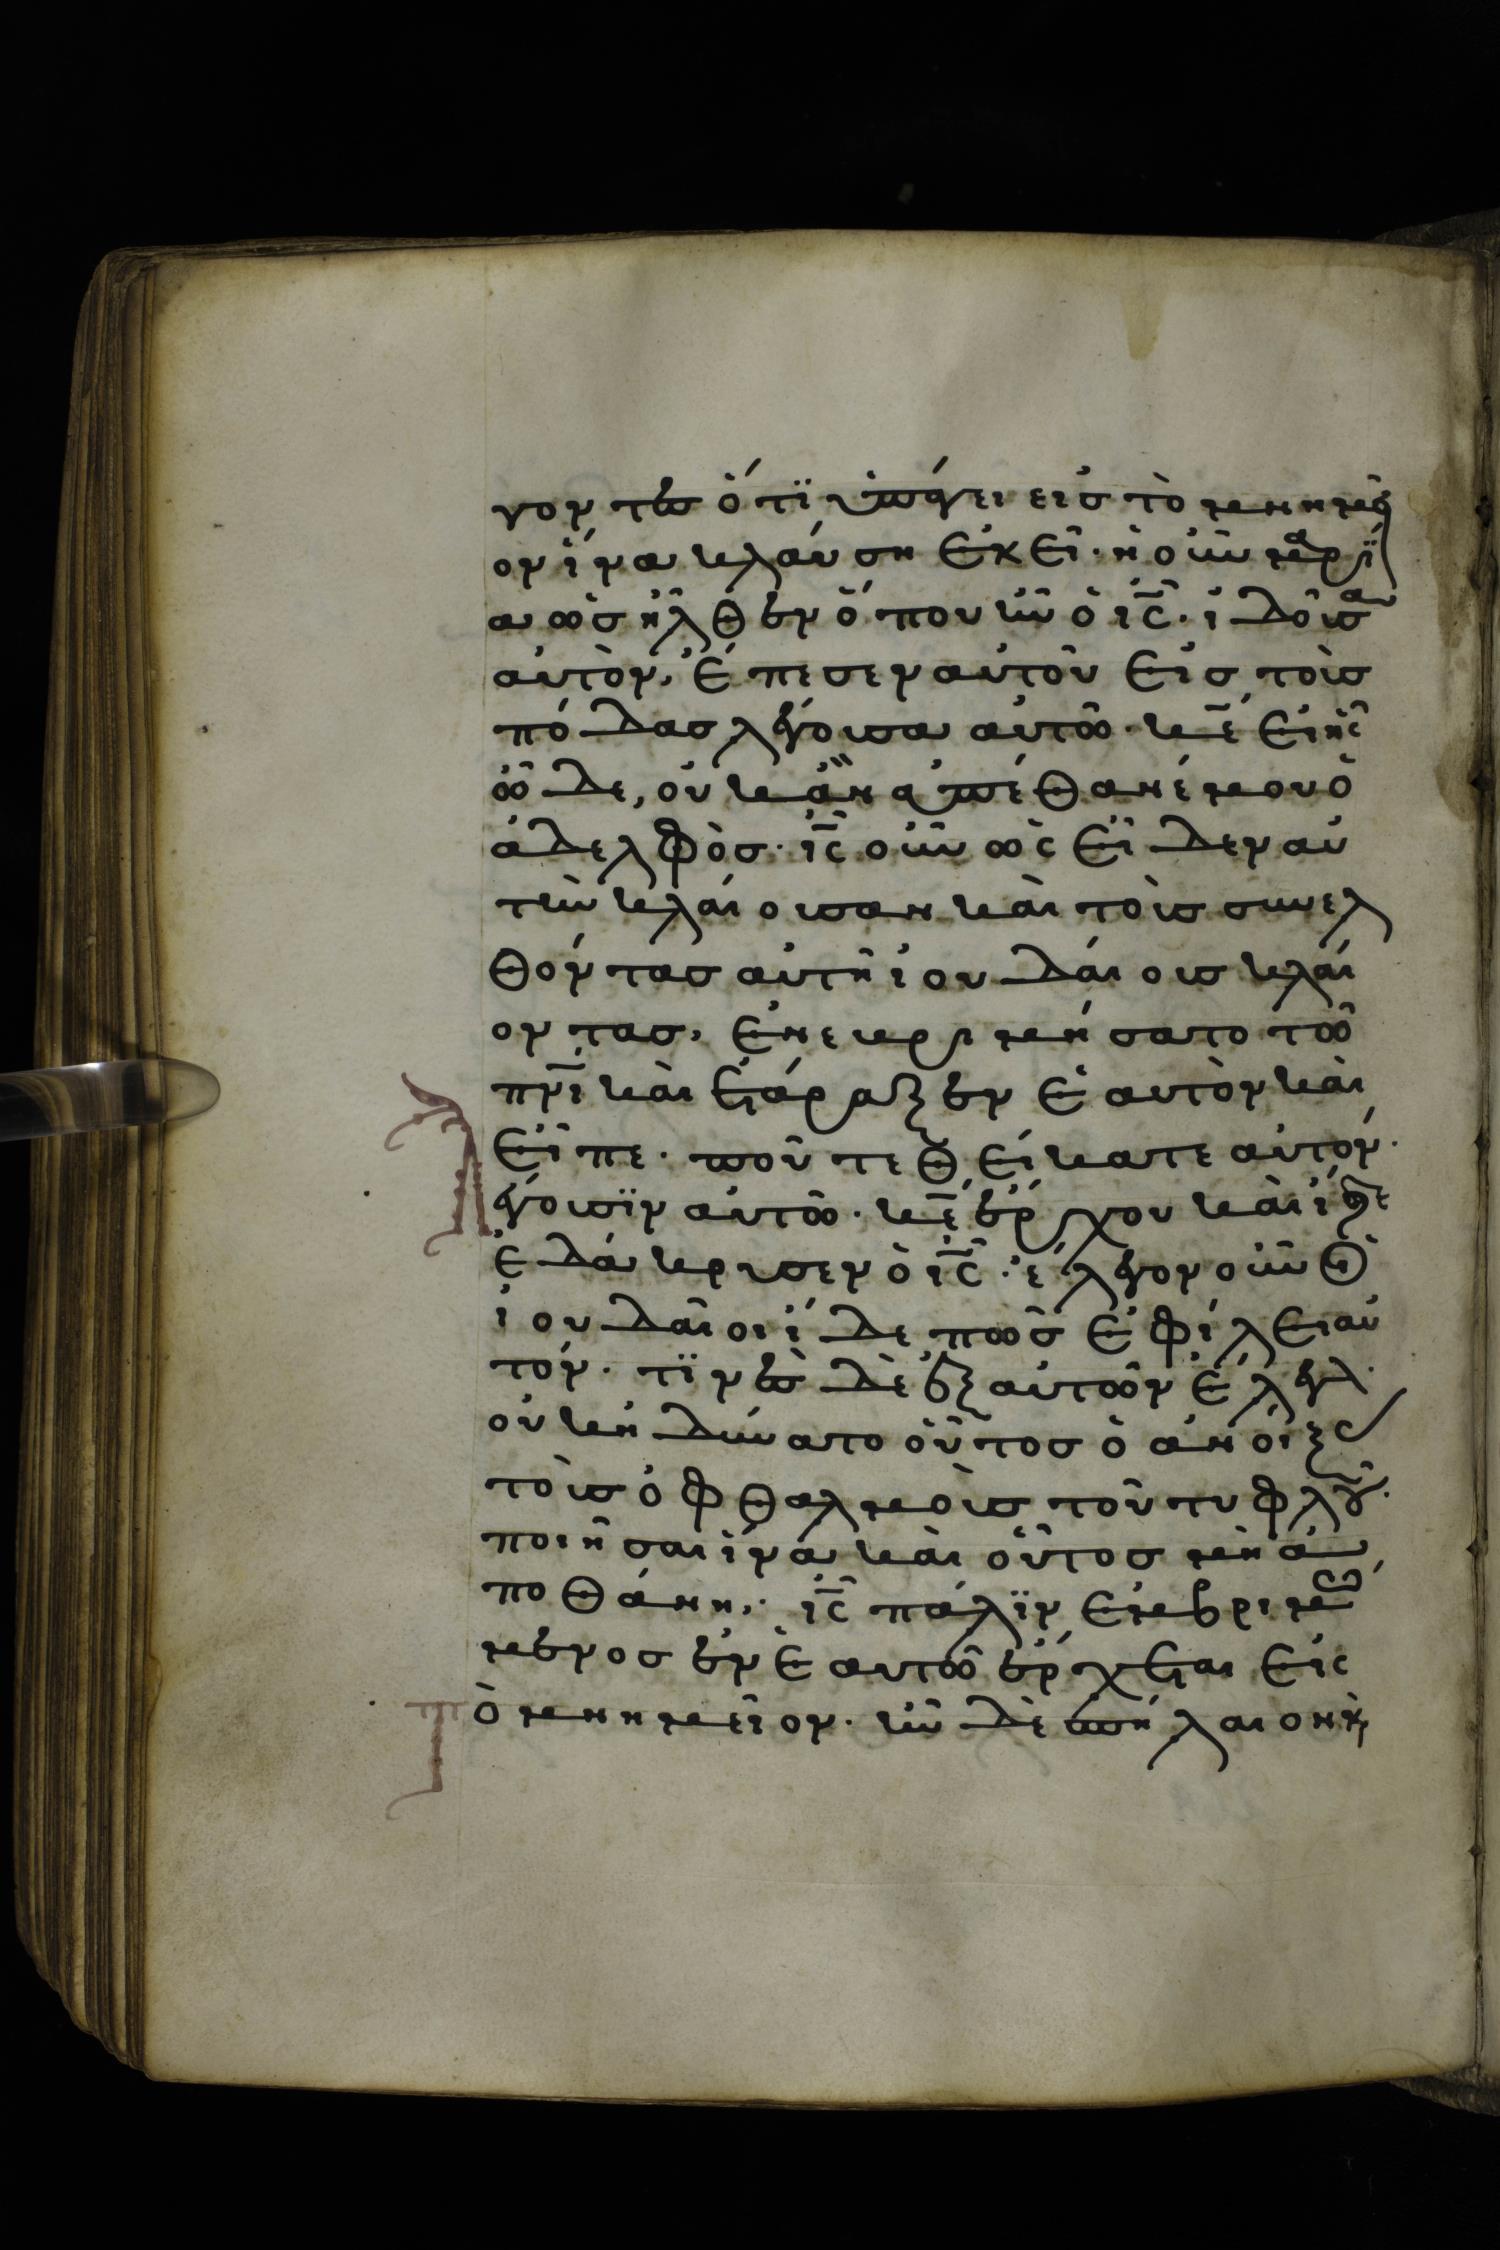 γοντες ὅτϊ ὑπάγει εἰς τὸ μνημεῖ
ον ἵνα κλαύση ἐκεῖ· ἡ οὖν μαρϊ
α ὡς ἦλθεν ὅπου ἦν ὁ ις̅· ἰδοῦσα
αὐτὸν, ἔπεσεν αὐτοῦ εἰς τοὺς
πόδας λέγουσα αὐτῶ· κε̅ εἰ ἦς
ὧδε, οὐκ ἂν ἀπέθανέ μου ὁ
ἀδελφὸς· ις̅ οὖν ὡς εἶδεν αὐ
τὴν κλαίουσαν καὶ τοὺς συνελ
θόντας αὐτῆ ἰουδαίους κλαί
οντας, ἐνεβριμήσατο τῶ
πνι̅ καὶ ἐτάραξεν ἑαυτὸν καὶ
εἶπε· ποῦ τεθείκατε αὐτόν·
λέγουσϊν αὐτῶ· κε̅ ἔρχου καὶ ἴδε
ἐδάκρυσεν ὁ ις̅· ἔλεγον οὖν οἱ
ἰουδαῖοι ἴδε πῶς ἐφίλει αὐ
τόν· τϊνὲς δὲ ἐξ αὐτῶν ἔλεγον·
οὐκ ἠδύνατο οὗτος ὁ ἀνοίξας
τοὺς ὀφθαλμοὺς τοῦ τυφλοῦ·
ποιῆσαι ἵνα καὶ οὗτος μὴ ἀ
ποθάνη,· ις̅ πάλϊν ἐμβριμώ
μενος ἐν ἑαυτῶ ἔρχεται εἰς
τὸ μνημεῖον· ἦν δὲ σπήλαιον κ